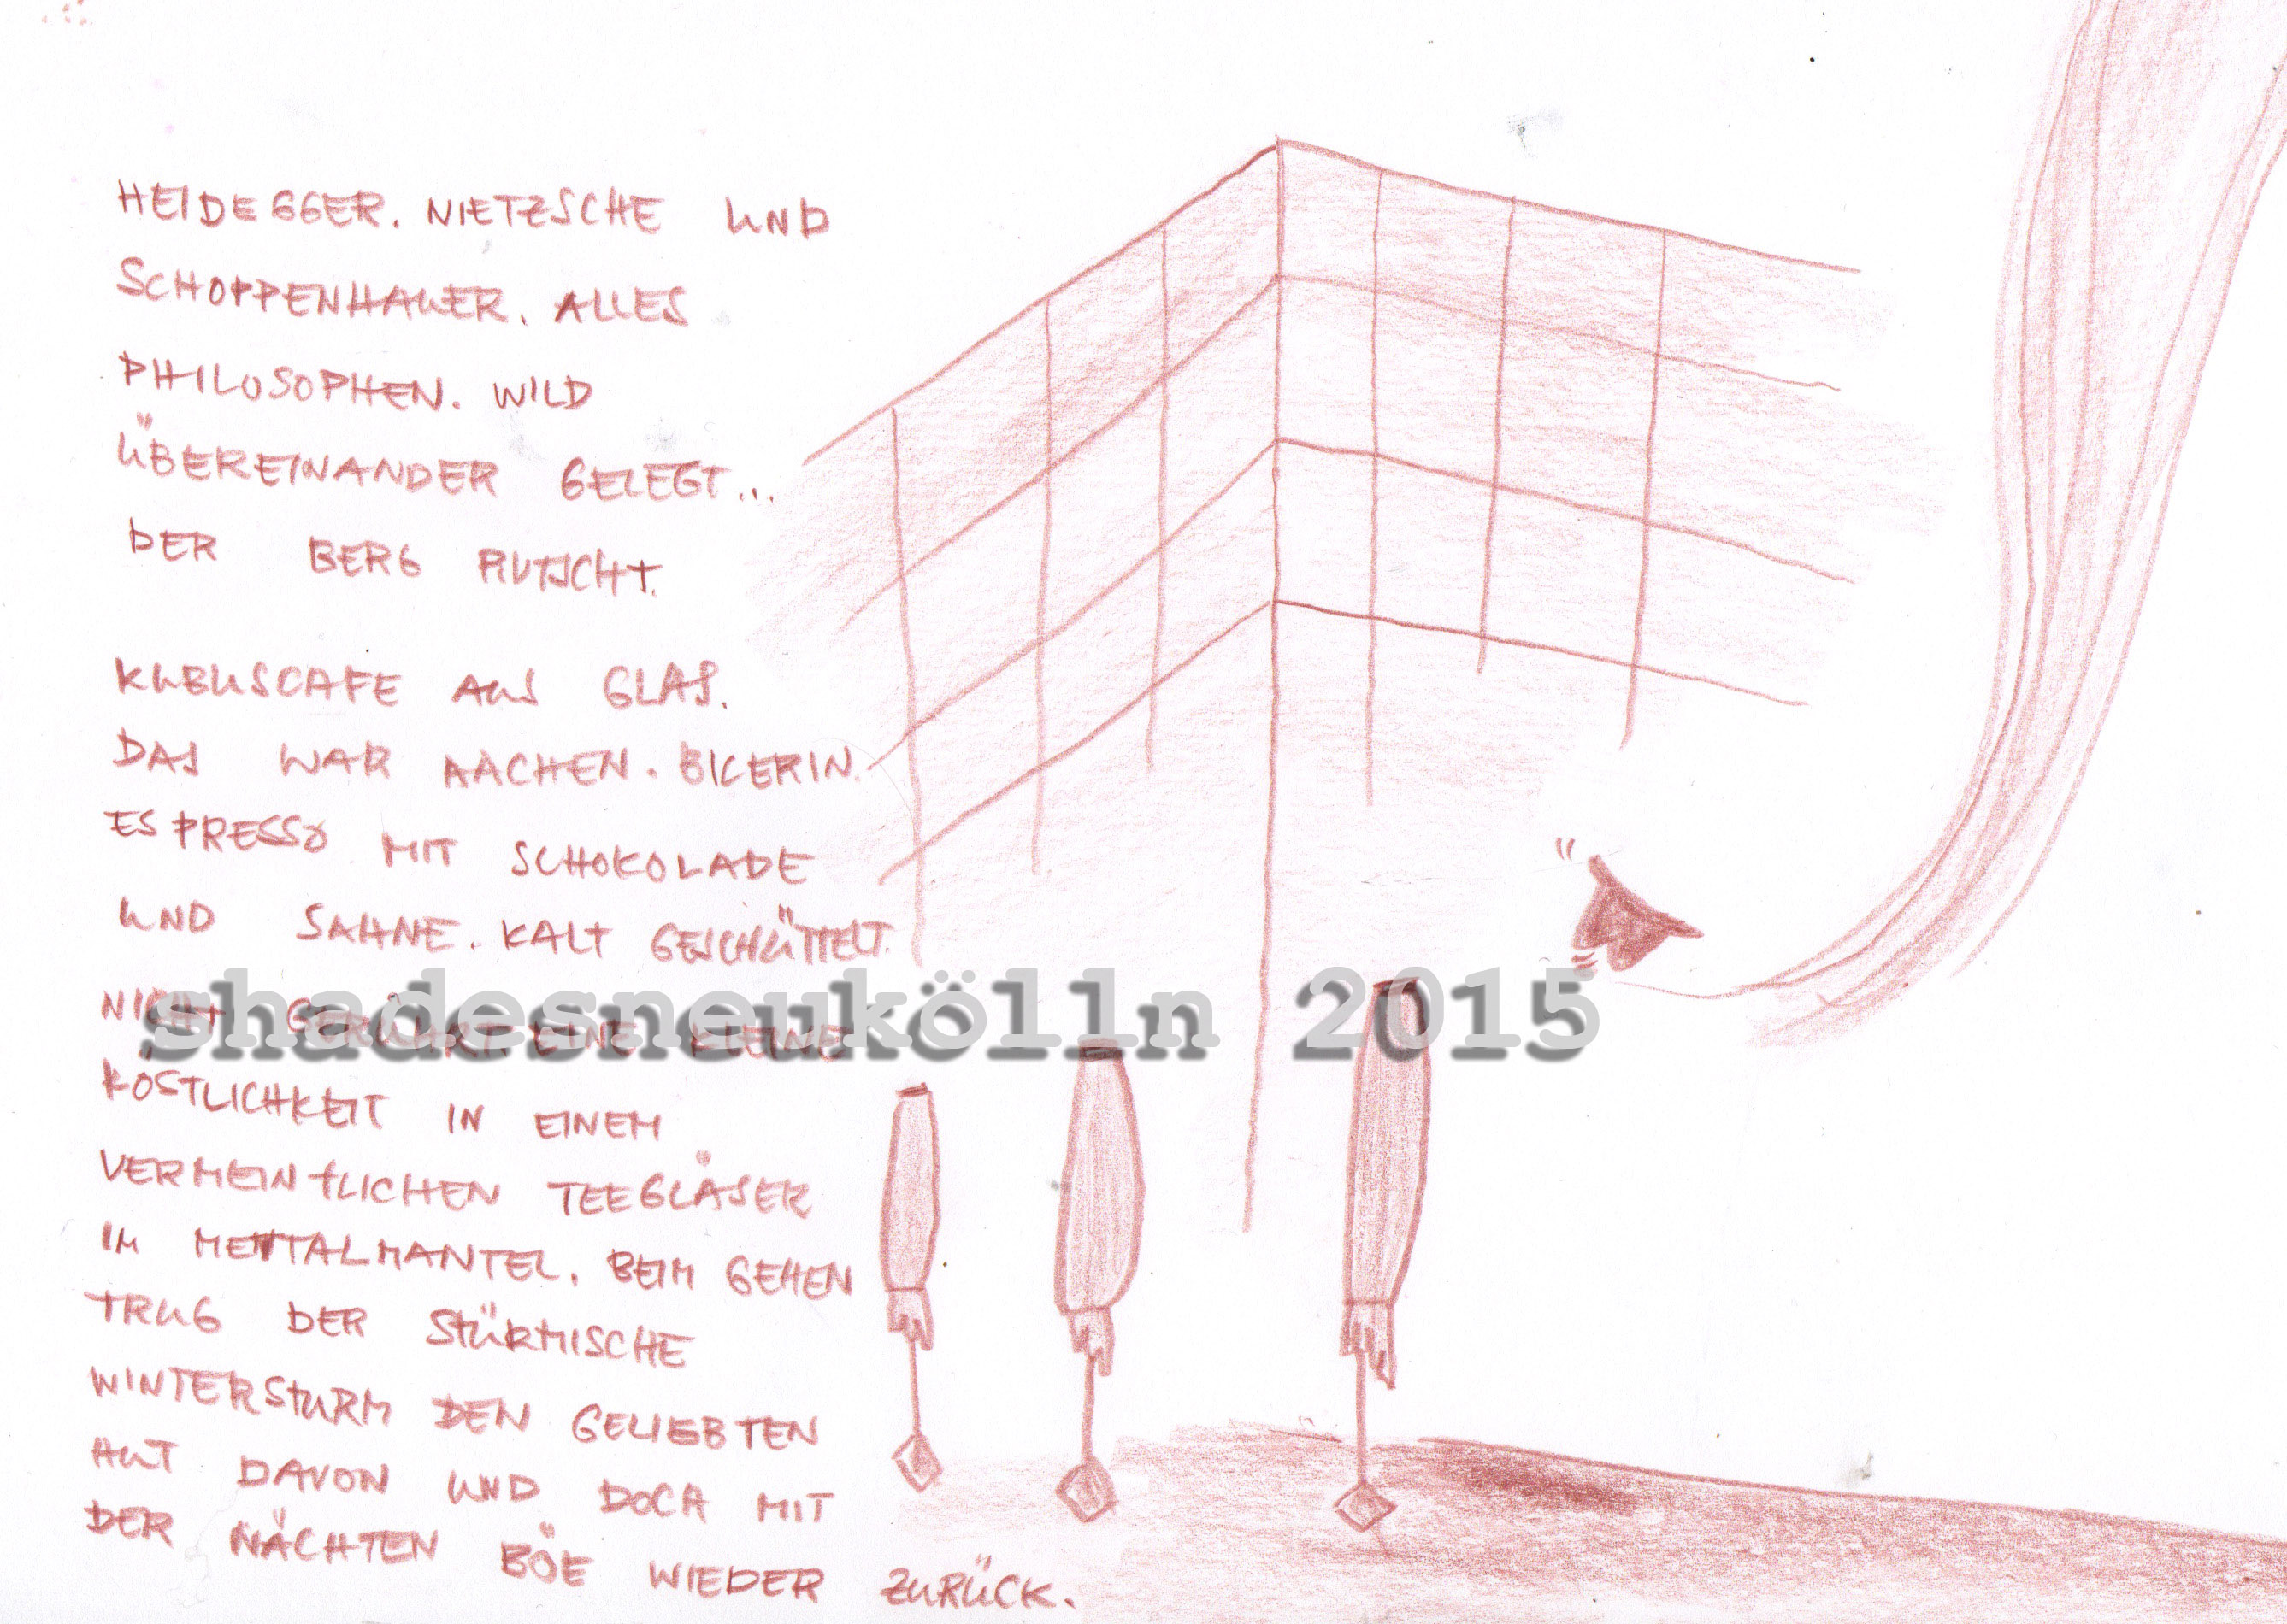 HEIDEGGER. NIETZSCHE UND
SCHOPPENHAUER. ALLES
PHILOSOPHEN. WILD
ÜBEREINANDER GELEGT...
DER BERG RUTSCHT.
KUBUSCAFE AUS GLAS.
DAS WAR AACHEN. BICERIN.
ESPRESSO MIT SCHOKOLADE
UND SAHNE. KALT GESCHÜTTELT.
NICHT GERÜHRT EINE KLEINE
shadesneukölln 2015
KÖSTLICHKEIT IN EINEM
VERMEINTLICHEN TEEGLÄSER
IM METTALMANTEL. BEIM GEHEN
TRUG DER STÜRMISCHE
WINTERSTURM DEN GELIEBTEN
HUT DAVON UND DOCH MIT
DER NÄCHTEN BÖE WIEDER ZURÜCK.